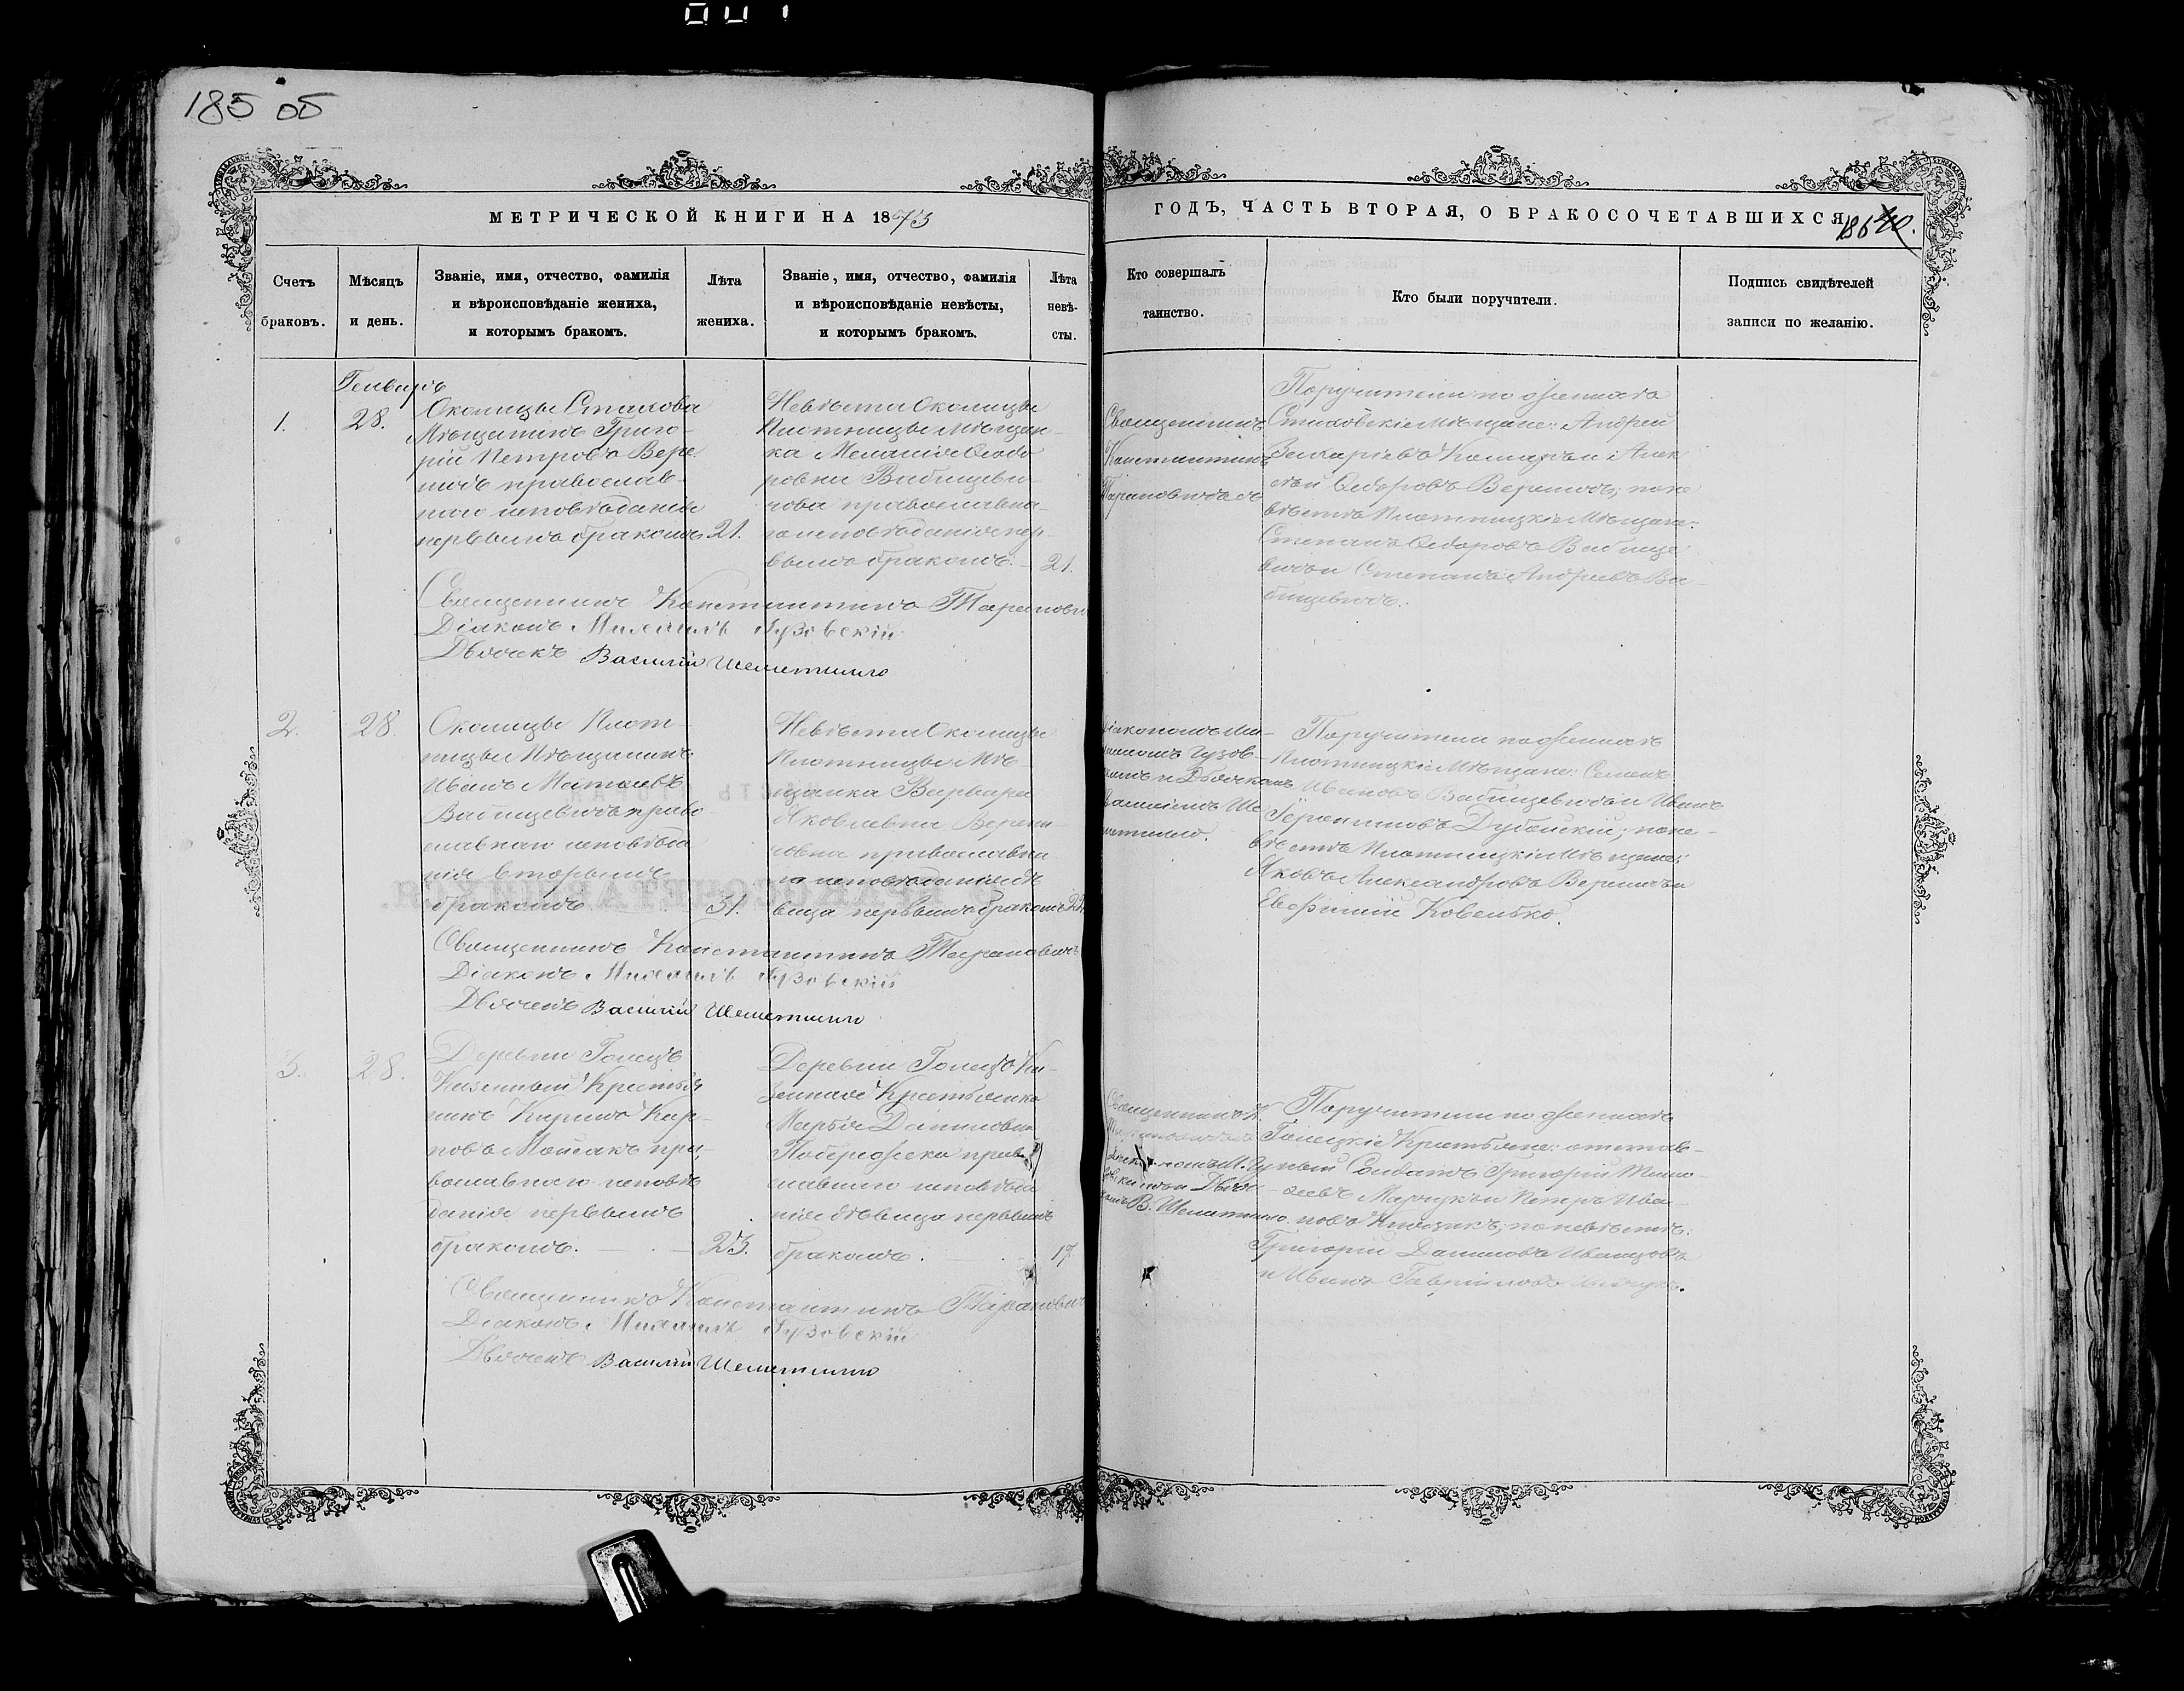 185 об
МЕТРИЧЕСКОЙ КНИГИ НА 1873
ГОДЪ, ЧАСТЬ ВТОРАЯ, О БРАКОСОЧЕТАВШИХСЯ
186
Счетъ браковъ.
Мѣсяцъ и день.
Званіе, имя, отчество, фамилія
и вѣроисповѣданіе жениха,
и которымъ бракомъ.
Лѣта жениха.
Званіе, имя, отчество, фамилія
и вѣроисповѣданіе невѣсты,
и которымъ бракомъ.
Лѣта невѣ-
сты.
Кто совершалъ
таинство.
Кто были поручители.
Подпись свидѣтелей
записи по желанію.
Генварь
1.
28.
Околицы Стахова
Мѣщанинъ Григо-
рій Петровъ Вере
ничъ православ-
наго исповѣданія
первымъ бракомъ
21.
Невѣста Околицы
Плотницы Мѣщан-
ка Меланія Ѳеодо
ровна
православна-
го исповѣданія пер-
вымъ бракомъ.
21.
Священникъ
Константинъ
Тарановичъ съ
Поручители по женихѣ
Стаховскіе Мѣщане: Андрей
Захаріевъ и Алек
сѣй Ѳедоровъ Вереничъ; по не
вѣстѣ Плотницкіе Мѣщане:
Степанъ Ѳедоровъ Вабище
вичъ и Степанъ Андреевъ Ва-
бищевичъ.
Священникъ Константинъ Таранови
Діаконъ Михаилъ Гузовскій
Дьячекъ Василій Шеметилло
2.
28.
Околицы Плот-
ницы Мѣщанинъ
Иванъ Матѳеевъ
Вабищевичъ право
славнаго исповѣда
нія вторымъ
бракомъ
31.
Невѣста Околицы
Плотницы Мѣ-
щанка Варвара
Яковлевна Верени-
човна православна
го исповѣданія дѣ
вица первымъ бракомъ
діакономъ Ми-
хаиломъ Гузов-
скимъ и Дьячкомъ
Василіемъ Ше
метилло.
Поручители по женихѣ
Плотницкіе Мѣщане: Семенъ
Ивановъ Вабищевичъ и Иванъ
Дубойскій; по не-
вѣстѣ Плотницкіе Мѣщане:
Яковъ Александровъ Вереничъ и
Евфимій Ковенько.
Священникъ Константинъ Тарановичъ
Діаконъ Михаилъ Гузовскій
Дьячекъ Василій Шеметилло
3.
28.
Деревни Голецъ
Казенный Крестья
нинъ Кирилъ Кар-
повъ пра-
вославнаго исповѣ
данія первымъ
бракомъ.
23.
Деревни Голецъ Ка-
зенная Крестьянка
Марья Даниловна
Побережска право
славнаго исповѣда
нія дѣвица первымъ
бракомъ.
17.
Священникъ К.
Тарановичъ съ
діакономъ М. Гу
зовскимъ и Дьяч-
комъ В. Шеметилло
Поручители по женихѣ
Голецкіе Крестьяне: отстав-
ный Солдатъ Григорій Тимо-
ѳеевъ и Петръ Ива-
новъ; по невѣстѣ:
Григорій Даниловъ Иванцовъ
и Иванъ Гавріиловъ
Священникъ Константинъ Таранович
Діаконъ Михаилъ Гузовскій
Дьячекъ Василій Шеметилло